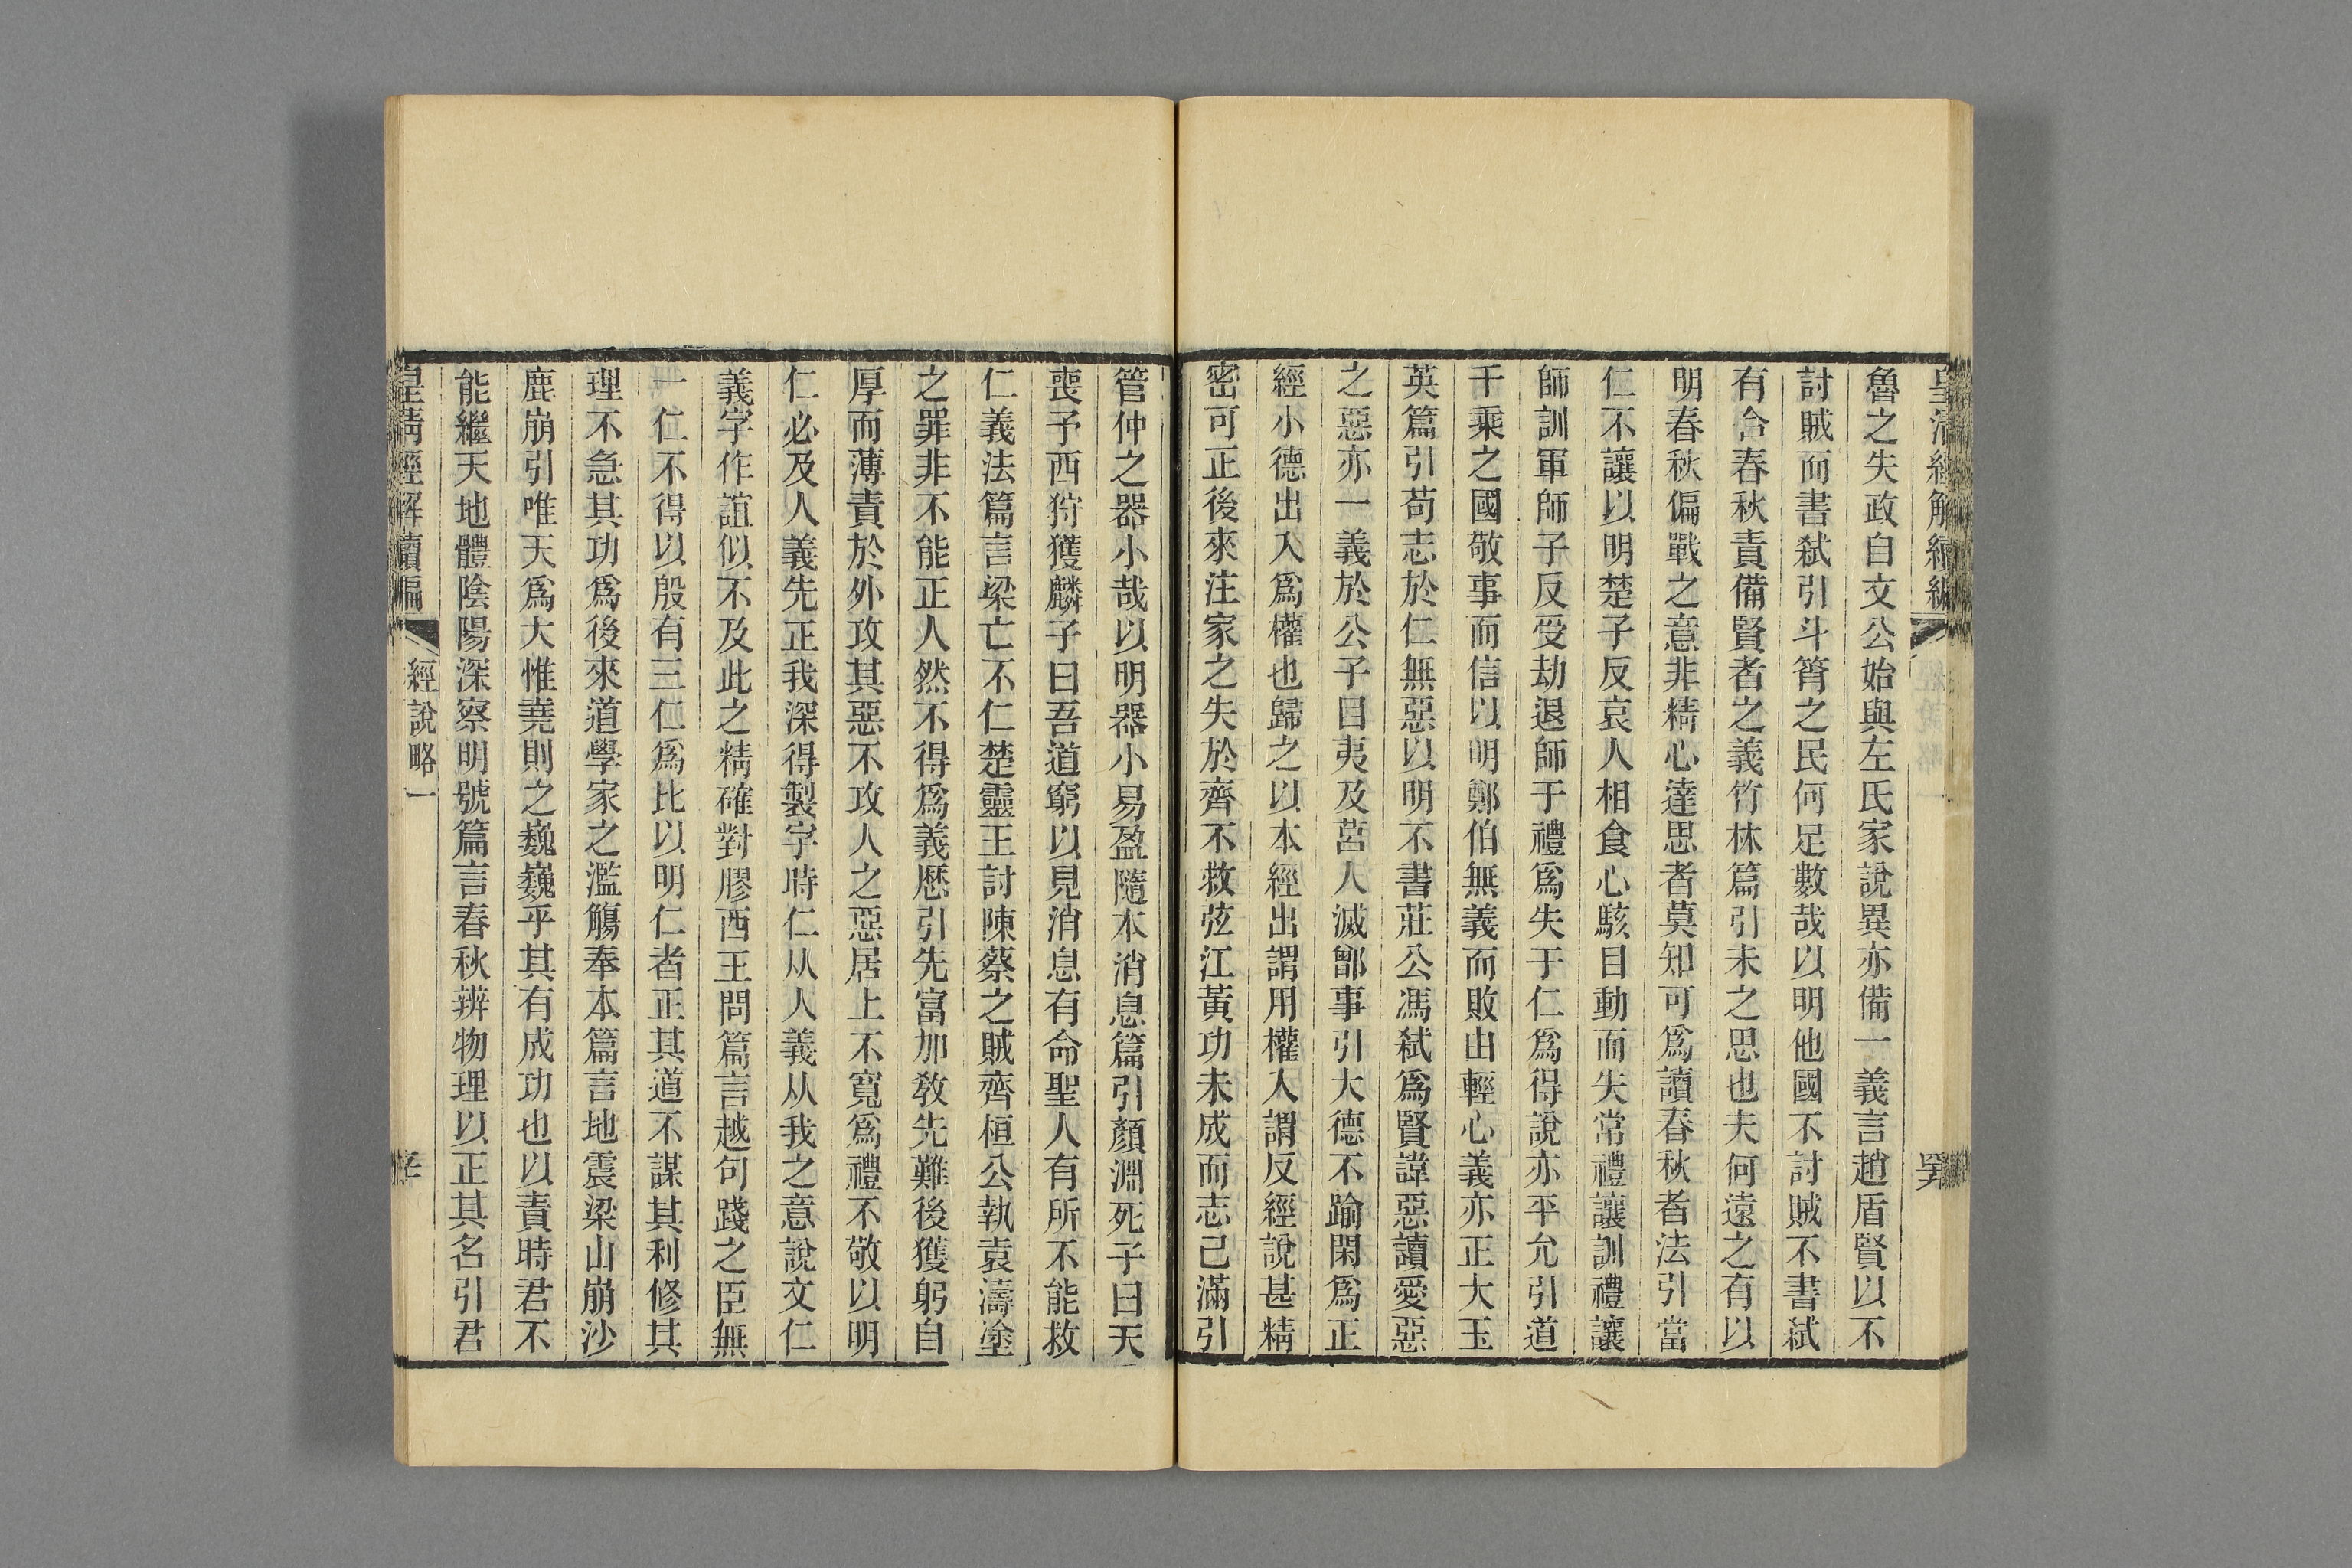 皇清經解續編
魯之失政自文公始與左氏家說異亦備一義言趙盾賢以不
討賊而書弒引斗筲之民何足數哉以明他國不討賊不書弒
有合春秋責備賢者之義竹林篇引未之思也夫何遠之有以
明春秋偏戰之意非精心達思者莫知可爲讀春秋者法引當
仁不讓以明楚子反哀人相食心駭目動而失常禮讓訓禮讓
師訓軍師子反受劫退師于禮爲失于仁爲得說亦平允引道
千乘之國敬事而信以明鄭伯無義而敗由輕心義亦正大玉
英篇引苟志於仁無惡以明不書莊公馮弒爲賢諱惡讀愛惡
之惡亦一義於公子目夷及莒人滅鄫事引大德不踰閑爲正
經小德出入爲權也歸之以本經出謂用權入謂反經說甚精
密可正後來注家之失於齊不救弦江黃功未成而志已滿引
管仲之器小哉以明器小易盈隨本消息篇引顏淵死子曰天
喪予西狩獲麟子曰吾道窮以見消息有命聖人有所不能救
仁義法篇言梁亡不仁楚靈王討陳蔡之賊齊桓公執袁濤塗
之罪非不能正人然不得爲義歷引先富加敎先難後獲躬自
厚而薄責於外攻其惡不攻人之惡居上不寬爲禮不敬以明
仁必及人義先正我深得製字時仁从人義从我之意說文仁
義字作誼似不及此之精確對膠西王問篇言越句踐之臣無
一仁不得以殷有三仁爲比以明仁者正其道不謀其利修其
理不急其功爲後來道學家之濫觴奉本篇言地震梁山崩沙
鹿崩引唯天爲大惟堯則之巍巍乎其有成功也以責時君不
能繼天地體陰陽深察明號篇言春秋辨物理以正其名引君
皇清經解續編
經說略一